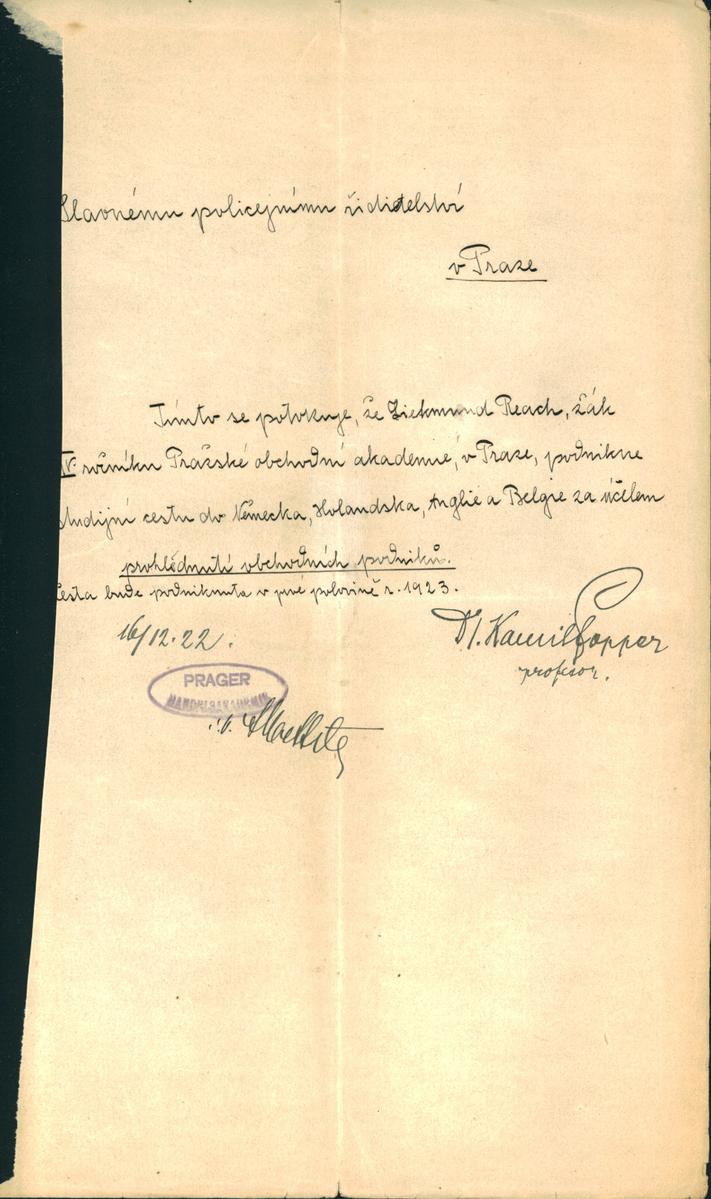 Slavnému policejnímu řiditelství
v Praze
Tímto se potvrzuje, že Ziekmund Reach, žák
IV. ročníku Pražské obchodní akademie, v Praze, podnikne
studijní cestu do Německa, Holandska, Anglie a Belgie za účelem
prohlédnutí obchodních podniků.
Cesta bude podniknuta v prvé polovině r. 1923.
16/12.22.
Dr. Kamil Popper
profesor.
PRAGER
HANDELSAKADEMIE
i.V.